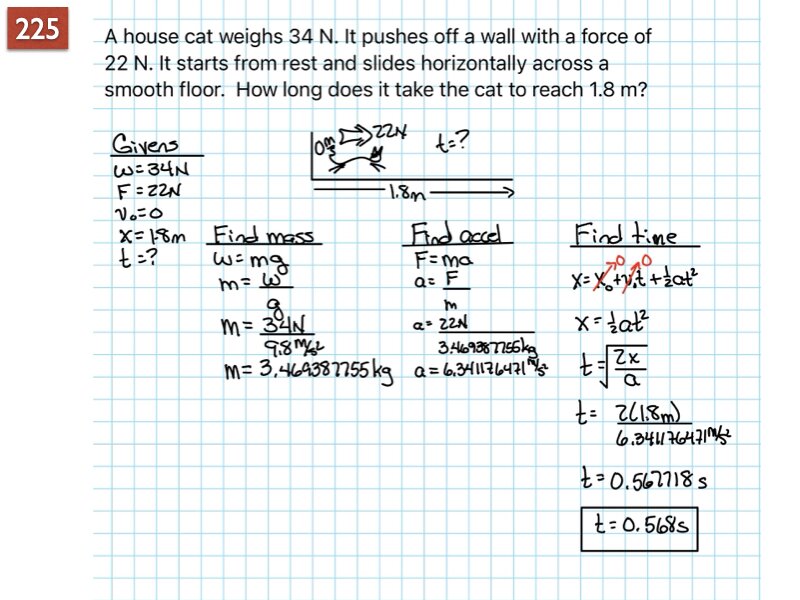 225
A house cat weighs 34 N. It pushes off a wall with a force of
22 N. It starts from rest and slides horizontally across a
smooth floor.  How long does it take the cat to reach 1.8 m?
Givens
w=34N
F=22N
v₀=0
x=1.8m
t=?
0 m/s
22N
t=?
1.8m
Find mass
w=mg
m= w/g
m= 34N/9.8 m/s²
m= 3.469387755 kg
Find accel
F=ma
a= F/m
a= 22N/3.469387755 kg
a=6.341176471 m/s²
Find time
0 0
x=x₀+v₀t+½at²
x=½at²
t=√(2x/a)
t= 2(1.8m)/6.341176471 m/s²
t=0.567718 s
t=0.568s